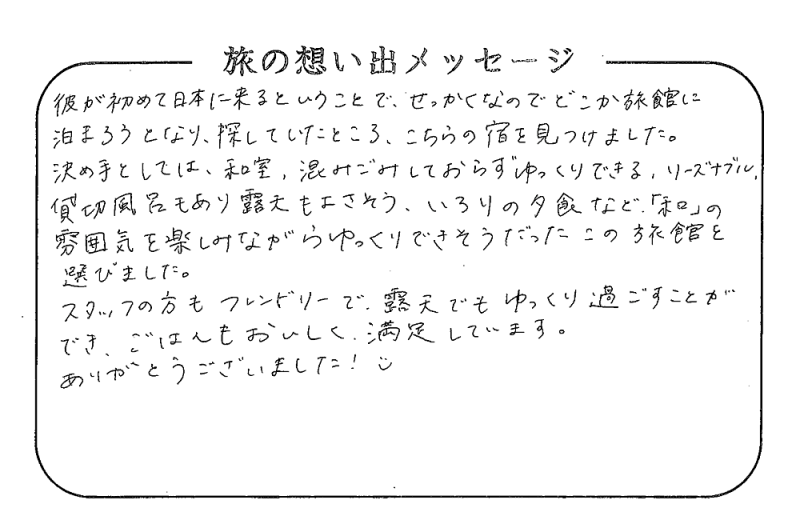 旅の想い出メッセージ
彼が初めて日本に来るということで、せっかくなのでどこか旅館に
泊まろうとなり、探していたところ、こちらの宿を見つけました。
決め手としては、和室，混みごみしておらずゆっくりできる，リーズナブル，
貸切風呂もあり露天もよさそう、いろりの夕食など、「和」の
雰囲気を楽しみながらゆっくりできそうだったこの旅館を
選びました。
スタッフの方もフレンドリーで、露天でもゆっくり過ごすことが
でき、ごはんもおいしく、満足しています。
ありがとうございました！